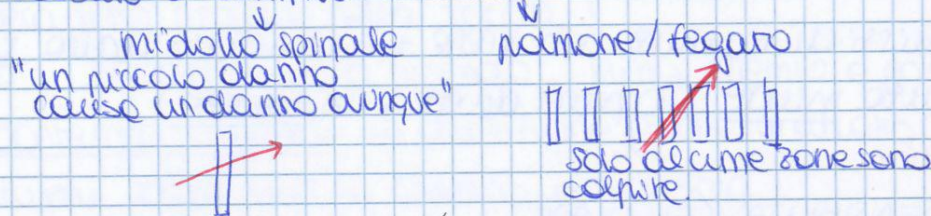 midollo spinale
"un piccolo danno
causa un danno ovunque"
polmone/fegato
solo alcune zone sono
colpite.